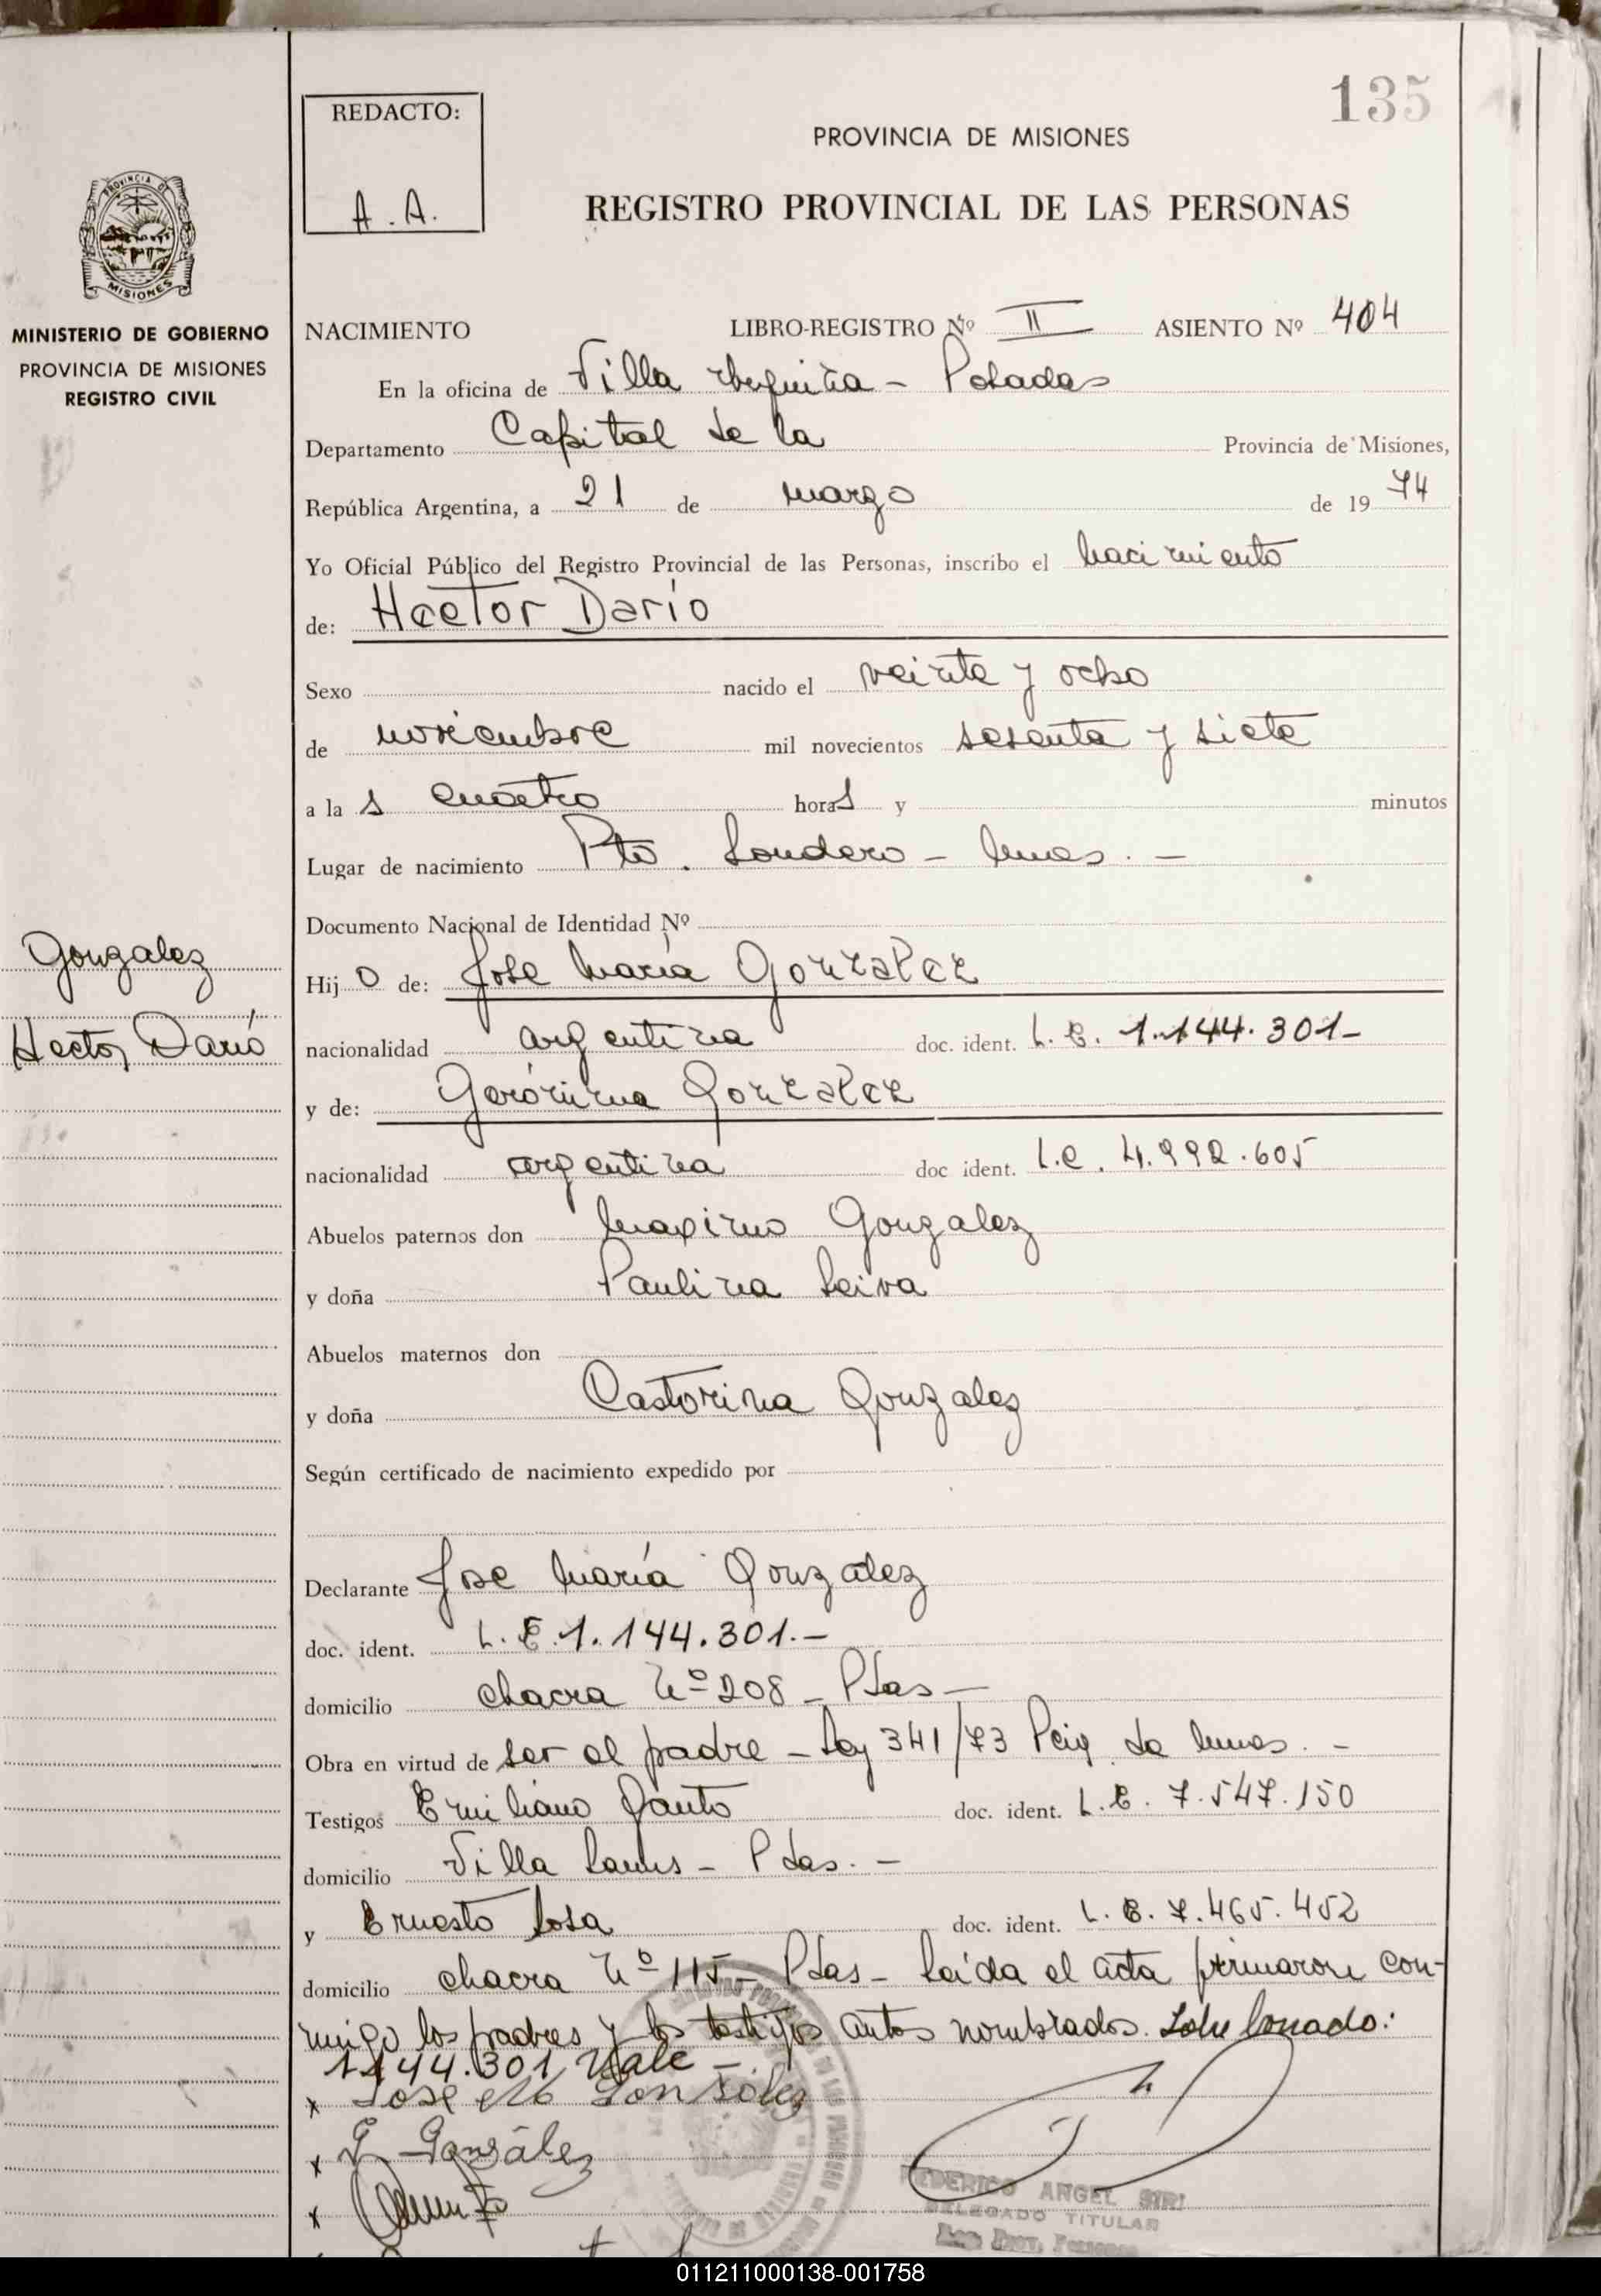 135
REDACTO:
A.A.
PROVINCIA DE MISIONES
REGISTRO PROVINCIAL DE LAS PERSONAS
PROVINCIA DE
MISIONES
MINISTERIO DE GOBIERNO
PROVINCIA DE MISIONES
REGISTRO CIVIL
NACIMIENTO LIBRO-REGISTRO Nº II ASIENTO Nº 404
En la oficina de Villa Urquiza - Posadas
Departamento Capital de la Provincia de Misiones,
República Argentina, a 21 de marzo de 1974
Yo Oficial Público del Registro Provincial de las Personas, inscribo el nacimiento
de: Hector Darío
Sexo nacido el veinte y ocho
de noviembre mil novecientos sesenta y siete
a la s cuatro horas y minutos
Lugar de nacimiento Pto. Londero - Mnes. -
Documento Nacional de Identidad Nº
Gonzalez
Hector Darío
Hijo de: Jose María Gonzalez
nacionalidad argentina doc. ident. L.E. 1.144.301-
y de: Gerónima Gonzalez
nacionalidad argentina doc ident. L.C. 4.992.605
Abuelos paternos don Maximo Gonzalez
y doña Paulina Leiva
Abuelos maternos don
y doña Castorina Gonzalez
Según certificado de nacimiento expedido por
Declarante Jose María Gonzalez
doc. ident. L.E. 1.144.301.-
domicilio chacra Nº 208 - Pdas -
Obra en virtud de ser el padre - Ley 341/73 de Mnes. -
Testigos Emiliano doc. ident. L.E. 7.547.150
domicilio Villa Lanus - Pdas. -
y Ernesto Sosa doc. ident. L.E. 7.465.452
domicilio chacra Nº 115 - Pdas - Leída el acta firmaron con-
migo los padres y los testigos antes nombrados. Sobre borrado:
1144.301 Vale -.
x Jose Ma Gonsález
x G Gonsález
x
FEDERICO ANGEL
DELEGADO TITULAR
011211000138-001758